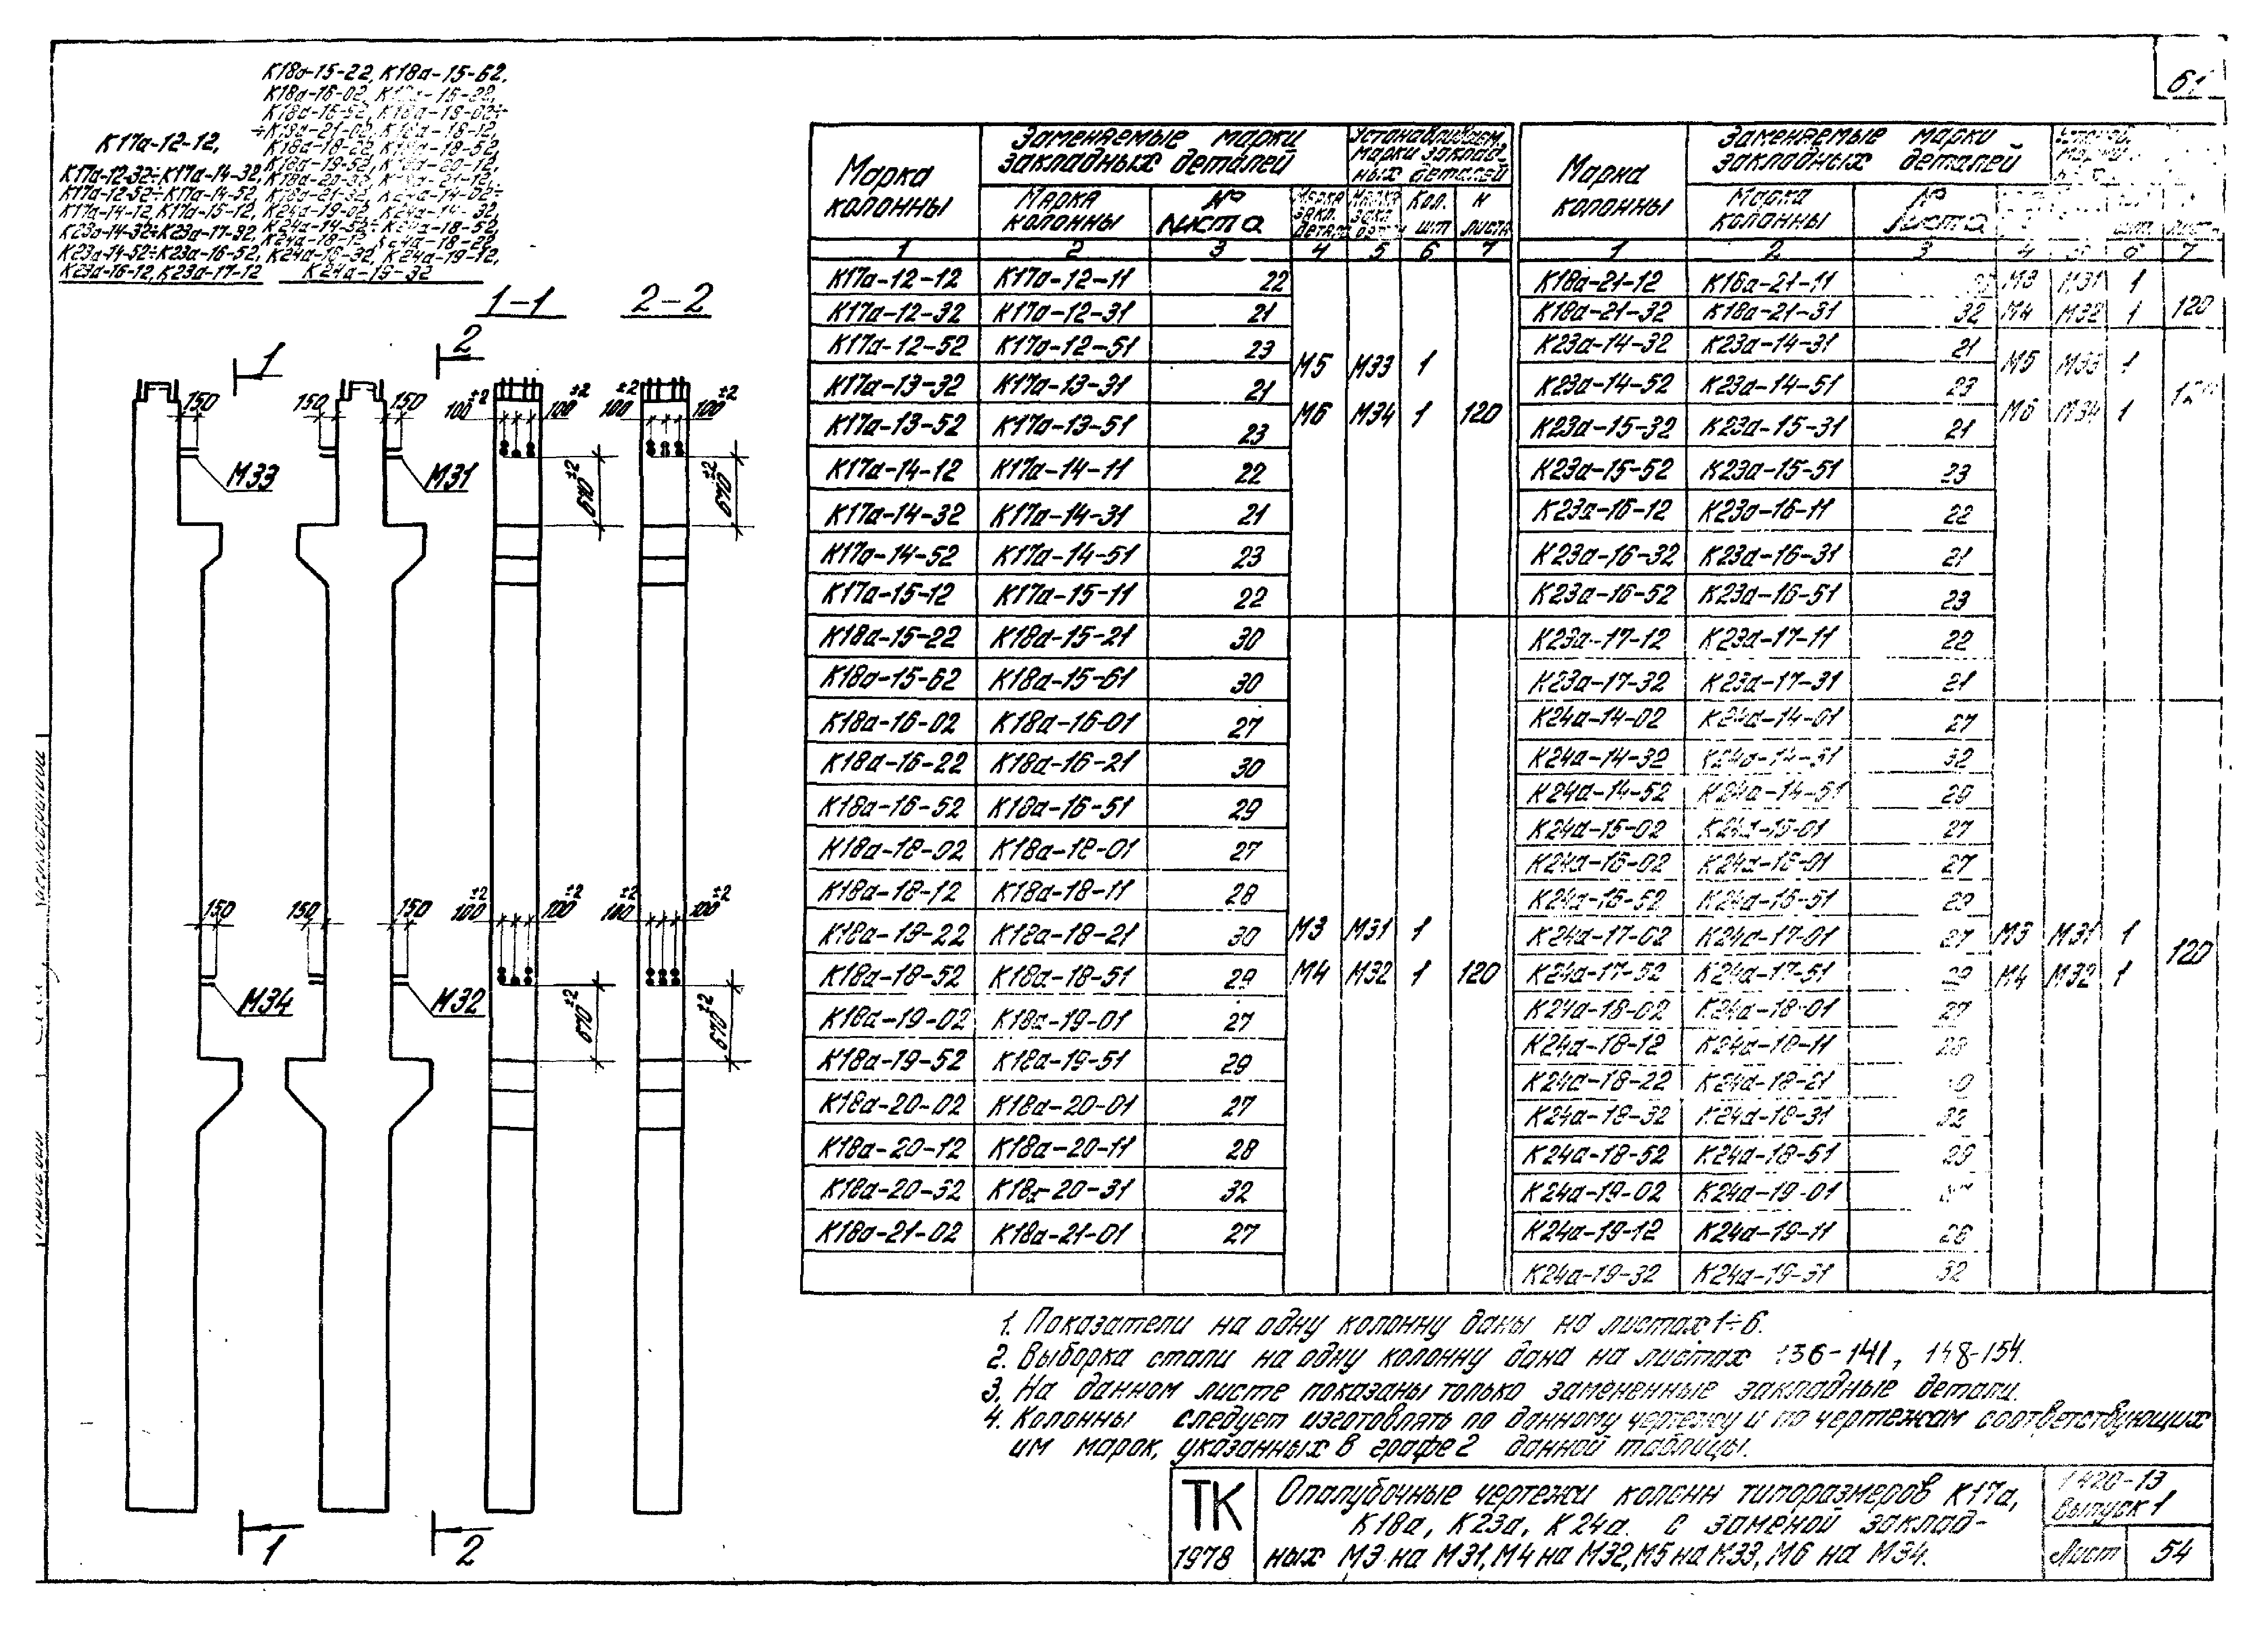 61
К18а-15-22, К18а-15-62,
К18а-16-02, К18а-16-22,
К18а-16-52, К18а-18-02÷
÷К18а-21-02, К18а-18-12,
К18а-18-22, К18а-18-52,
К18а-19-52, К18а-20-12,
К18а-20-32, К18а-21-12,
К18а-21-32, К24а-14-02÷
К24а-19-02, К24а-14-32,
К24а-14-52÷К24а-18-52,
К24а-18-12, К24а-18-22,
К24а-18-32, К24а-19-12,
К24а-19-32
К17а-12-12,
К17а-12-32÷К17а-14-32,
К17а-12-52÷К17а-14-52,
К17а-14-12, К17а-15-12,
К23а-14-32÷К23а-17-32,
К23а-14-52÷К23а-16-52,
К23а-16-12, К23а-17-12
1-1 2-2
1 2
150 150 150 100±2 100±2 100±2 100±2
М33 М31 670±2 670±2
150 150 150 100±2 100±2 100±2 100±2
М34 М32 670±2 670±2
1 2
Марка колонны
Заменяемые марки закладных деталей
Устанавливаем. марки заклад-ных деталей
Марка колонны
№ листа
Марка закл. детали
Марка закл. детали
Кол. шт
N листа
1 2 3 4 5 6 7
К17а-12-12 К17а-12-11 22
К17а-12-32 К17а-12-31 21
К17а-12-52 К17а-12-51 23
М5 М33 1
К17а-13-32 К17а-13-31 21
М6 М34 1 120
К17а-13-52 К17а-13-51 23
К17а-14-12 К17а-14-11 22
К17а-14-32 К17а-14-31 21
К17а-14-52 К17а-14-51 23
К17а-15-12 К17а-15-11 22
К18а-15-22 К18а-15-21 30
К18а-15-62 К18а-15-61 30
К18а-16-02 К18а-16-01 27
К18а-16-22 К18а-16-21 30
К18а-16-52 К18а-16-51 29
К18а-18-02 К18а-18-01 27
К18а-18-12 К18а-18-11 28
К18а-18-22 К18а-18-21 30 М3 М31 1
К18а-18-52 К18а-18-51 29 М4 М32 1 120
К18а-19-02 К18а-19-01 27
К18а-19-52 К18а-19-51 29
К18а-20-02 К18а-20-01 27
К18а-20-12 К18а-20-11 28
К18а-20-32 К18а-20-31 32
К18а-21-02 К18а-21-01 27
Марка колонны
Заменяемые марки закладных деталей
Марка колонны
№ листа
шт. лист
1 2 3 4 5 6 7
К18а-21-12 К18а-21-11 М3 М31 1
К18а-21-32 К18а-21-31 32 М4 М32 1 120
К23а-14-32 К23а-14-31 21
М5 М33 1
К23а-14-52 К23а-14-51 23
М6 М34 1 120
К23а-15-32 К23а-15-31 21
К23а-15-52 К23а-15-51 23
К23а-16-12 К23а-16-11 22
К23а-16-32 К23а-16-31 21
К23а-16-52 К23а-16-51 23
К23а-17-12 К23а-17-11 22
К23а-17-32 К23а-17-31 21
К24а-14-02 К24а-14-01 27
К24а-14-32 К24а-14-31 32
К24а-14-52 К24а-14-51 29
К24а-15-02 К24а-15-01 27
К24а-16-02 К24а-16-01 27
К24а-16-52 К24а-16-51 29
К24а-17-02 К24а-17-01 27 М3 М31 1
120
К24а-17-52 К24а-17-51 29 М4 М32 1
К24а-18-02 К24а-18-01 27
К24а-18-12 К24а-18-11 28
К24а-18-22 К24а-18-21
К24а-18-32 К24а-18-31 32
К24а-18-52 К24а-18-51 29
К24а-19-02 К24а-19-01
К24а-19-12 К24а-19-11 28
К24а-19-32 К24а-19-31 32
1. Показатели на одну колонну даны на листах 1÷6.
2. Выборка стали на одну колонну дана на листах 136-141, 148-154.
3. На данном листе показаны только замененные закладные детали.
4. Колонны следует изготовлять по данному чертежу и по чертежам соответствующих
им марок, указанных в графе 2 данной таблицы.
ТК
1978
Опалубочные чертежи колонн типоразмеров К17а,
К18а, К23а, К24а. с заменой заклад-
ных М3 на М31, М4 на М32, М5 на М33, М6 на М34.
1 420-13
Выпуск 1
Лист 54